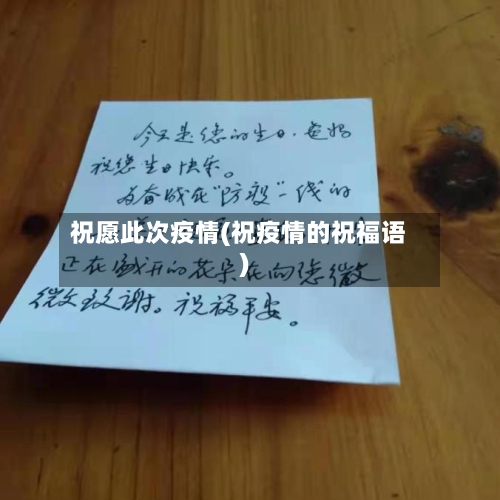 今天是您的生日.爸妈
祝您生日快乐。
为奋战在"防疫"一线的
祝愿此次疫情(祝疫情的祝福语
)
正在盛开的花朵在向您微
微致谢。祝福平安。